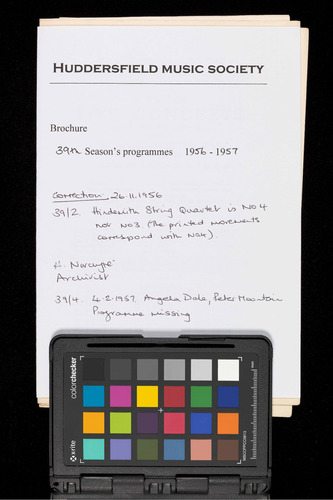 HUDDERSFIELD MUSIC SOCIETY
Brochure
39th Season's programmes 1956 - 1957
Correction 26.11.1956
39/2 Hindemith String Quartet is No 4
not No3 (The printed movements
correspond with No4).
Archivist
39/4. 4.2.1957. Angela Dale, Peter
Programme missing
colorchecker
x-rite